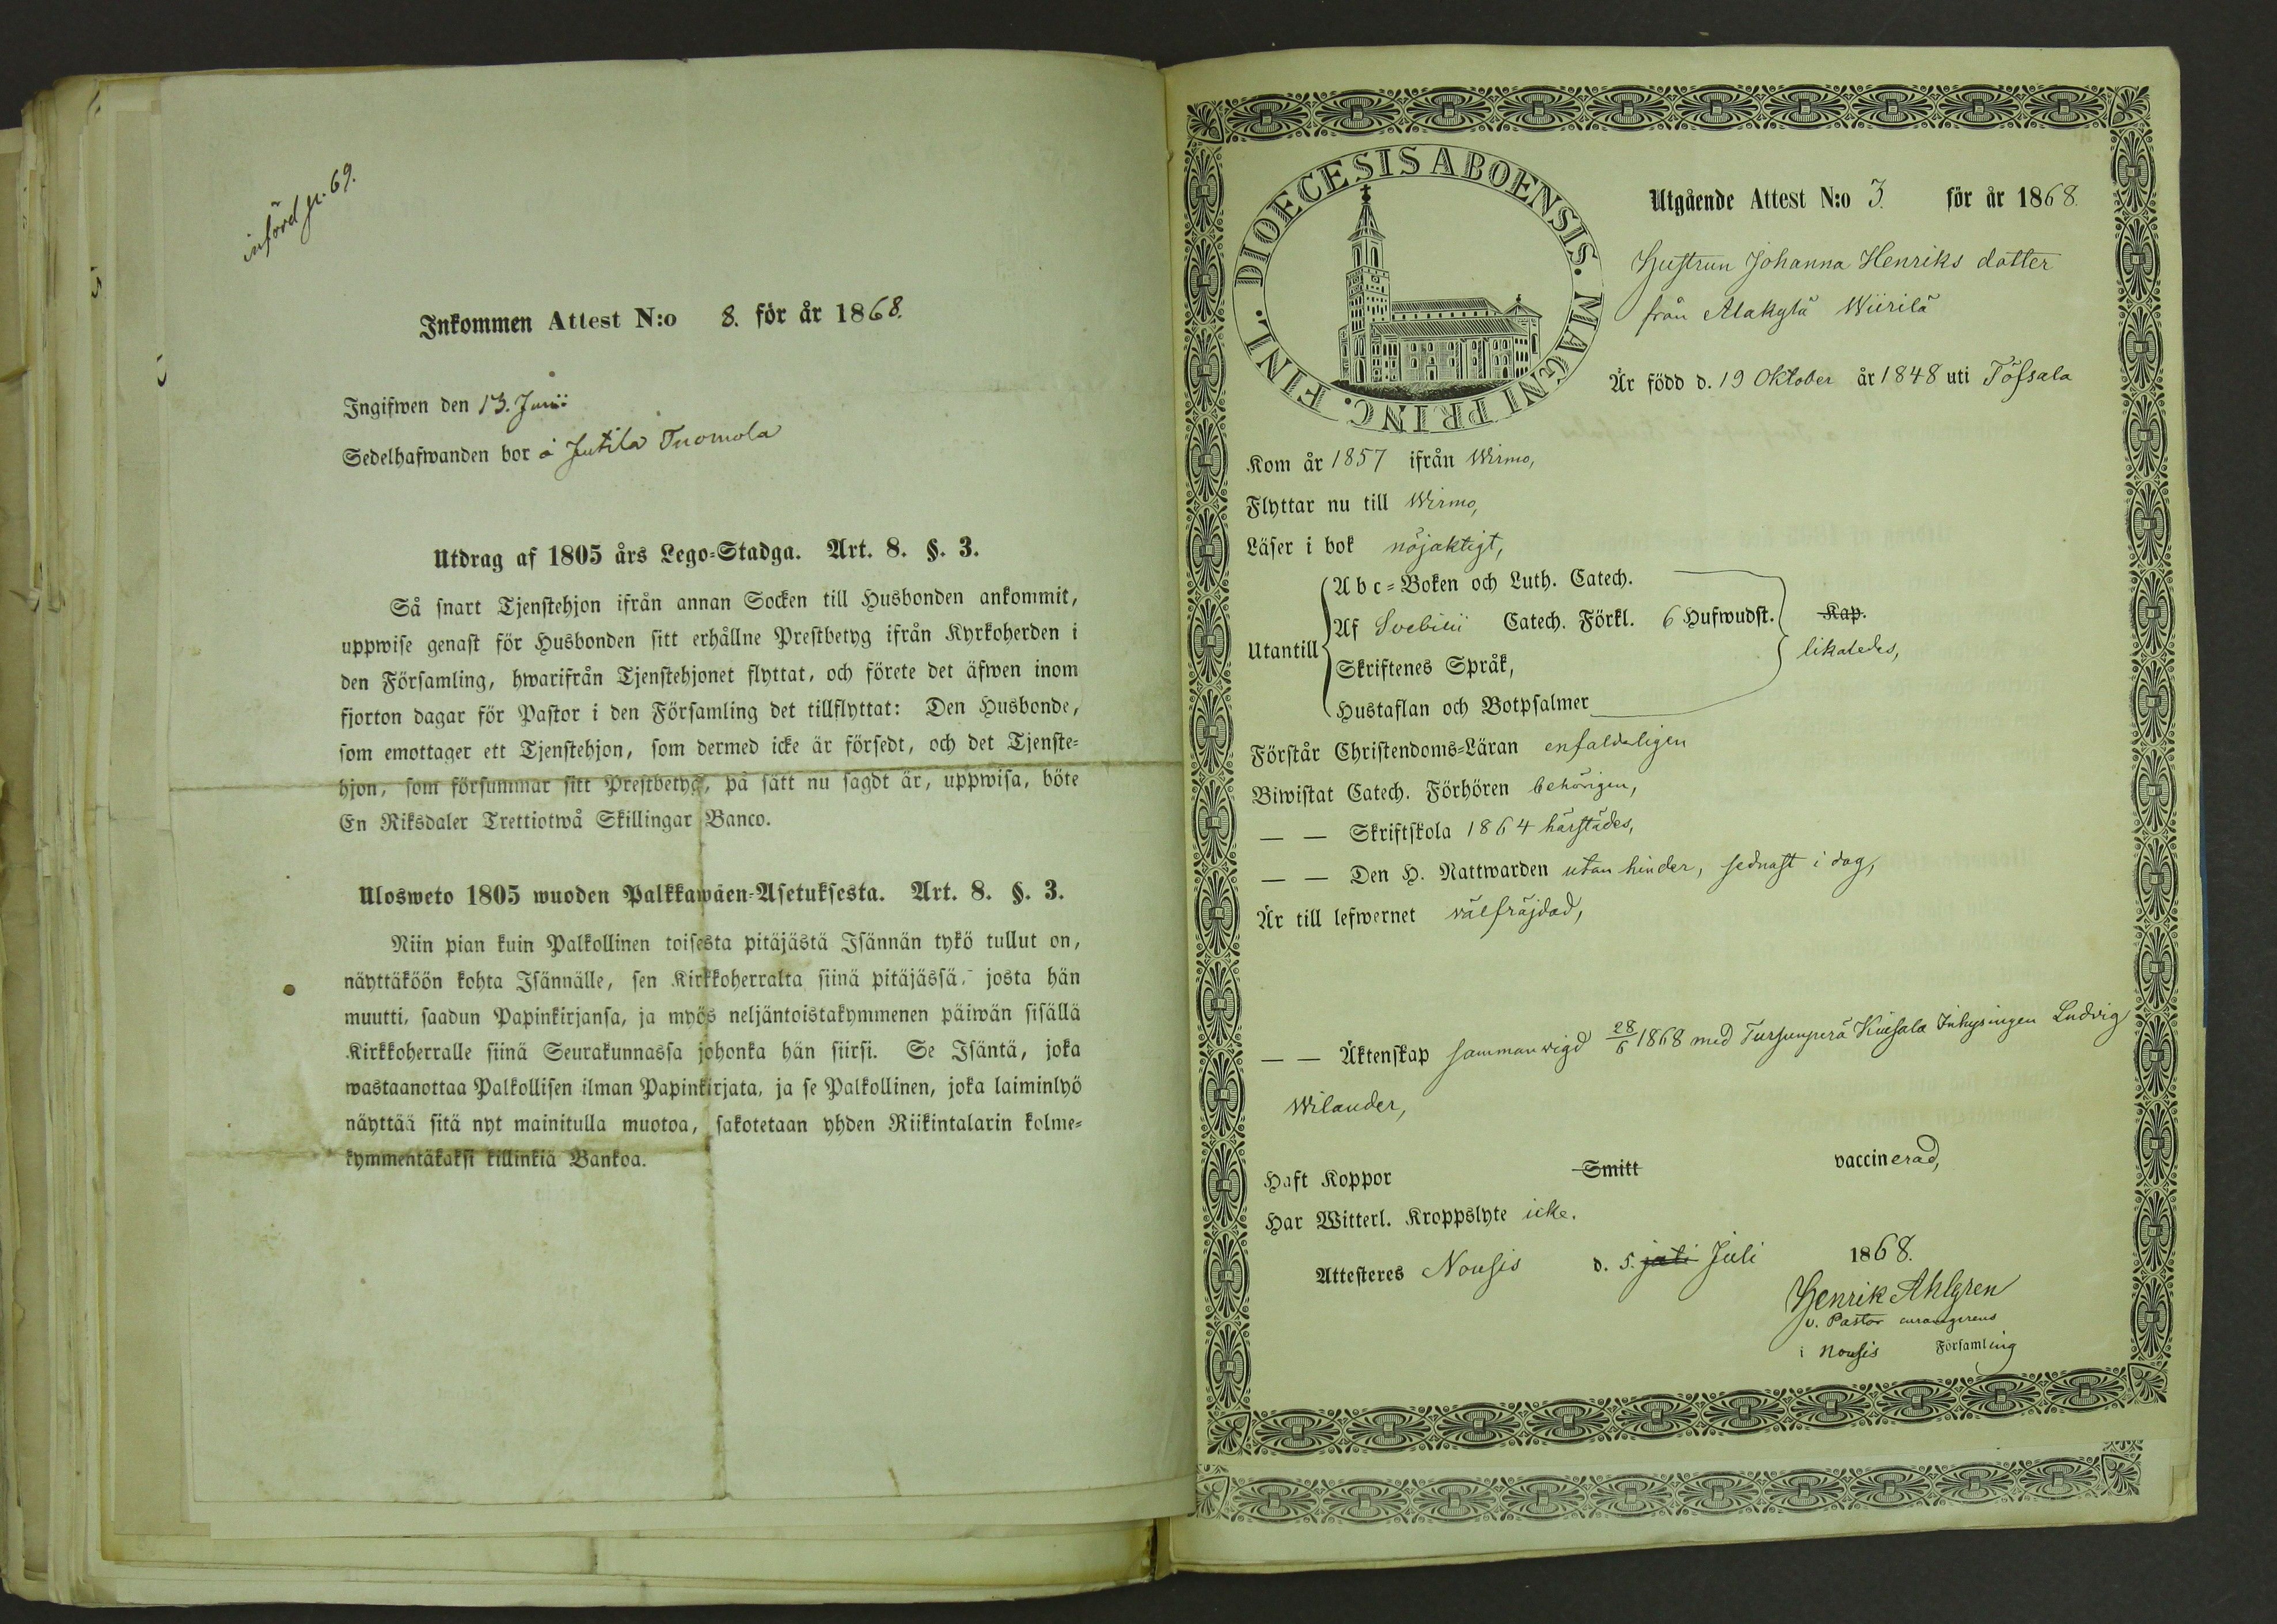 införd p. 69.
Inkommen Attest N:o 8. för år 1868.
Ingifwen den 13. Junii
Sedelhafwanden bor å Jutila Tuomola
Utdrag af 1805 års Lego-Stadga. Art. 8. §. 3.
Så snart Tjenstehjon ifrån annan Socken till Husbonden ankommit,
uppwise genast för Husbonden sitt erhållne Prestbetyg ifrån Kyrkoherden i
den Församling, hwarifrån Tjenstehjonet flyttat, och förete det äfwen inom
fjorton dagar för Pastor i den Församling det tillflyttat: Den Husbonde,
som emottager ett Tjenstehjon, som dermed icke är försedt, och det Tjenste-
hjon, som försummar sitt Prestbetyg, på sätt nu sagdt är, uppwisa, böte
En Riksdaler Trettiotwå Skillingar Banco.
Ulosweto 1805 wuoden Palkkawäen-Asetuksesta. Art. 8. §. 3.
Niin pian kuin Palkollinen toisesta pitäjästä Isännän tykö tullut on,
näyttäköön kohta Isännälle, sen Kirkkoherralta siinä pitäjässä, josta hän
muutti, saadun Papinkirjansa, ja myös neljäntoistakymmenen päiwän sisällä
Kirkkoherralle siinä Seurakunnassa johonka hän siirsi. Se Isäntä, joka
wastaanottaa Palkollisen ilman Papinkirjata, ja se Palkollinen, joka laiminlyö
näyttää sitä nyt mainitulla muotoa, sakotetaan yhden Riikintalarin kolme-
kymmentäkaksi killinkiä Bankoa.
DIOECESIS ABOENSIS. MAGNI PRINC. FINL.
Utgående Attest N:o 3. för år 1868.
Hustrun Johanna Henriks dotter
från Alakylä Wiirilä
Är född d. 19 Oktober år 1848 uti Töfsala
Kom år 1857 ifrån Wirmo,
Flyttar nu till Wirmo,
Läser i bok nöjaktigt,
Utantill
Abc-Boken och Luth. Catech.
Af Svebilii Catech. Förkl. 6 Hufwudst. Kap.
likaledes,
Skriftenes Språk,
Hustaflan och Botpsalmer
Förstår Christendoms-Läran enfaldeligen
Biwistat Catech. Förhören behörigen,
— — Skriftskola 1864 härstädes,
— — Den H. Nattwarden utan hinder, sednast i dag,
Är till lefwernet välfräjdad,
— — Äktenskap sammanvigd 28/6 1868 med Tursunperä Kuusala Inhysingen Ludvig
Wilander,
Haft Koppor Smitt vaccinerad,
Har Witterl. Kroppslyte icke.
Attesteres Nousis d. 5. juli Juli 1868.
Henrik Ahlgren
v. Pastor curamgerens
i Nousis Församling